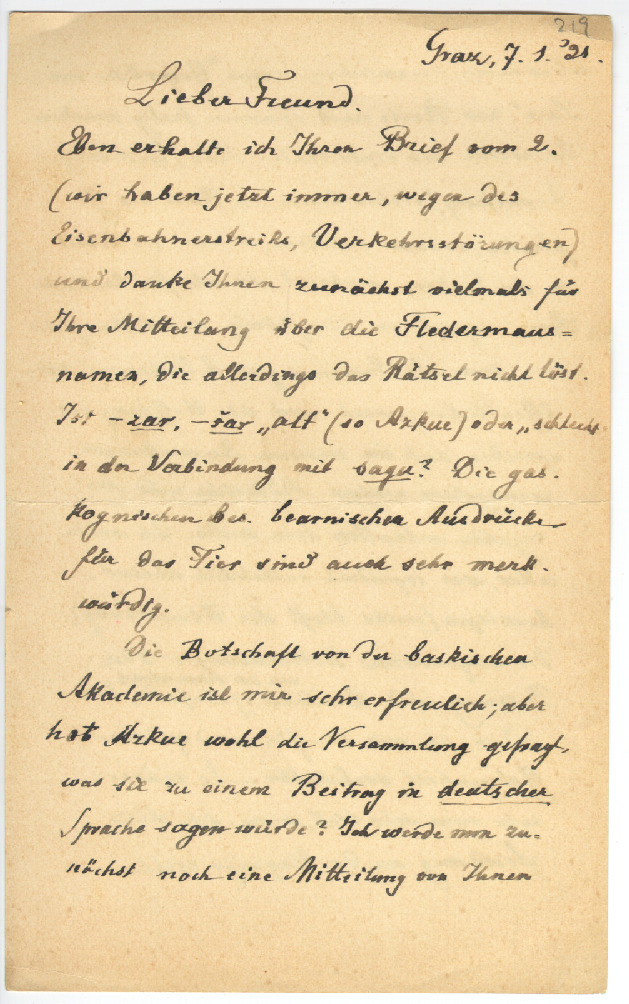 219
Graz, 7. 1. '21.
Lieber Freund.
Eben erhalte ich Ihren Brief vom 2.
(wir haben jetzt immer, wegen des
Eisenbahnerstreiks, Verkehrsstörungen)
und danke Ihnen zunächst vielmals für
Ihre Mitteilung über die Fledermaus=
namen, die allerdings das Rätsel nicht löst.
Ist -zar, -šar „alt" (so Azkue) oder „schlecht"
in der Verbindung mit sagu? Die gas-
kognischen bes. bearnischen Ausdrücke
für das Tier sind auch sehr merk-
würdig.
Die Botschaft von der baskischen
Akademie ist mir sehr erfreulich; aber
hat Azkue wohl die Versammlung gefragt,
was sie zu einem Beitrag in deutscher
Sprache sagen würde? Ich werde nun zu=
nächst noch eine Mitteilung von Ihnen